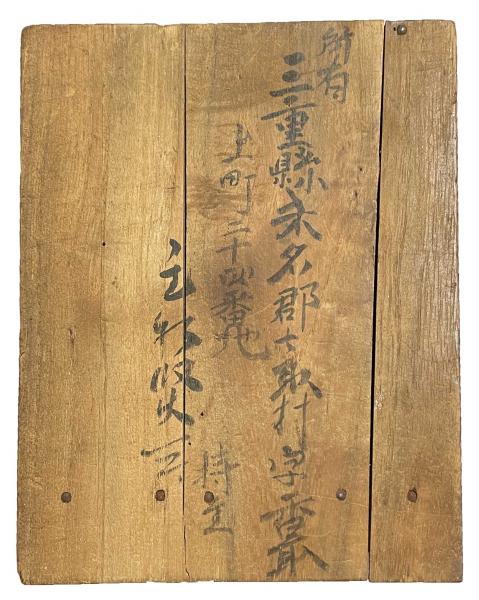 所有
三重縣桑名郡七取村字香取
上町二十四番地
持主
立松